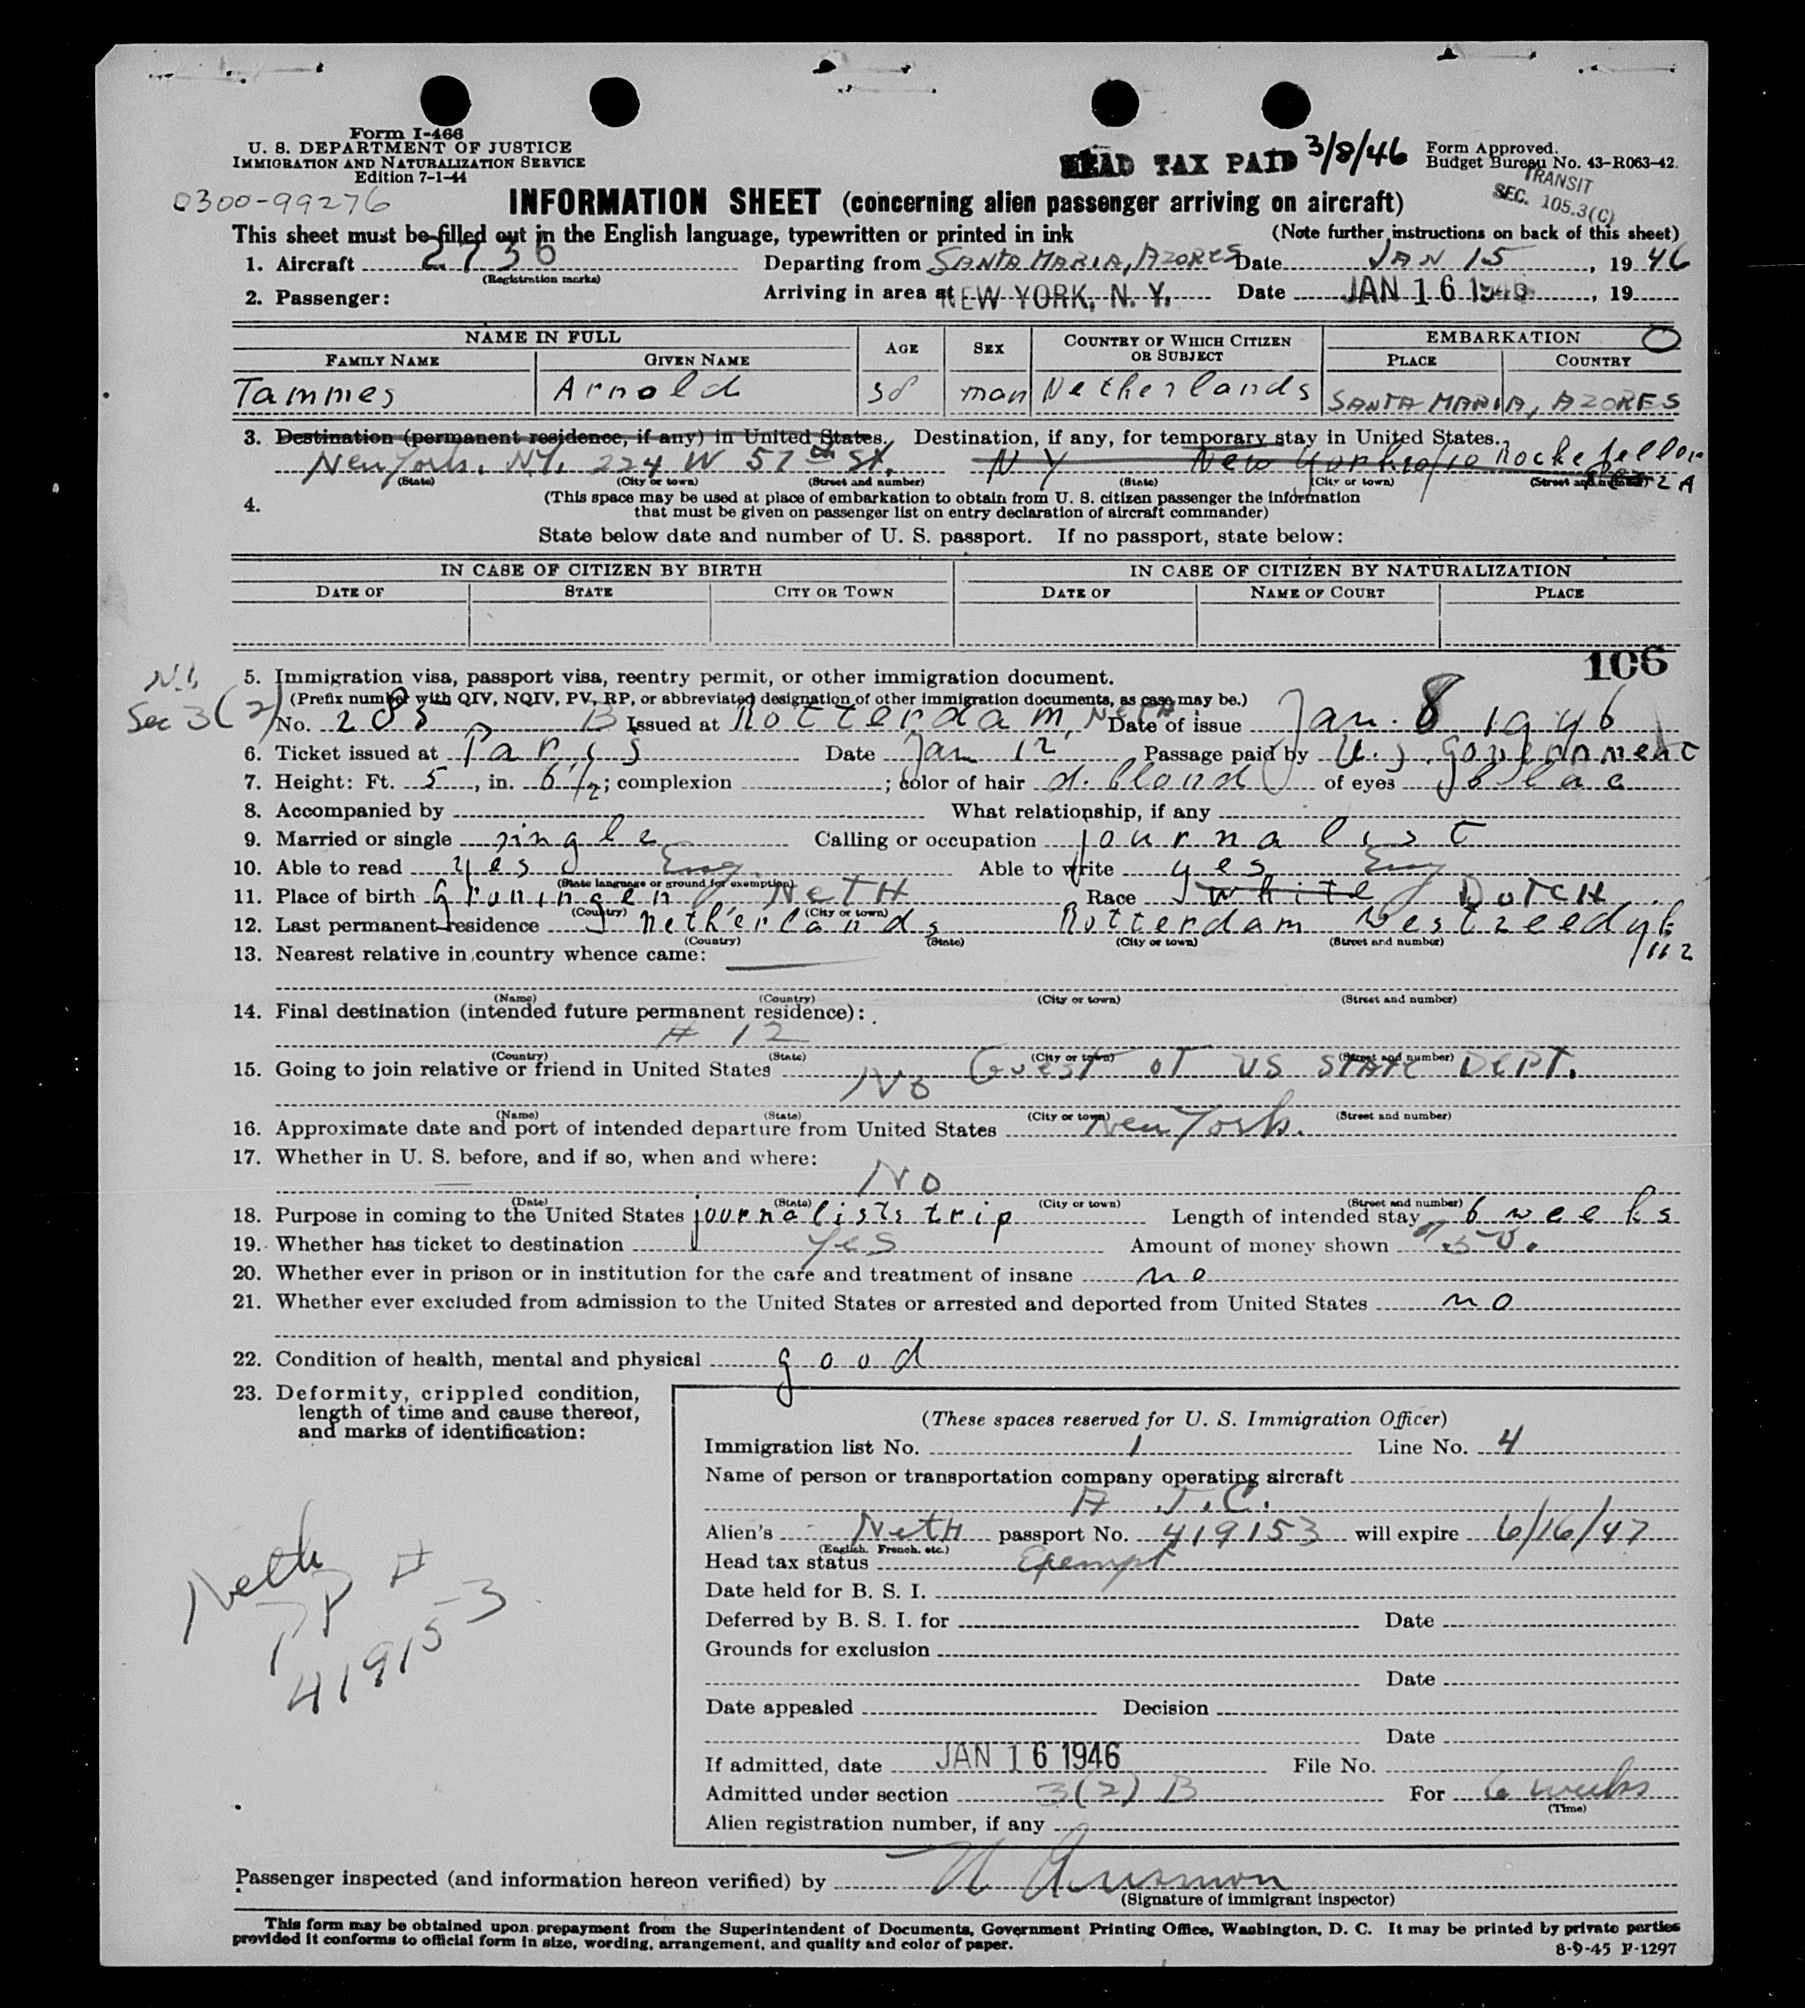 Form I-466
U. S. DEPARTMENT OF JUSTICE
IMMIGRATION AND NATURALIZATION SERVICE
Edition 7-1-44
HEAD TAX PAID 3/8/46
Form Approved.
Budget Bureau No. 43-R063-42.
TRANSIT
SEC. 105.3(C)
0300-99276
INFORMATION SHEET (concerning alien passenger arriving on aircraft)
This sheet must be filled out in the English language, typewritten or printed in ink (Note further instructions on back of this sheet)
1. Aircraft 2736 Departing from SANTA MARIA, AZORES Date JAN 15, 1946
(Registration marks)
2. Passenger: Arriving in area at NEW YORK, N. Y. Date JAN 16 1946, 19
NAME IN FULL AGE SEX COUNTRY OF WHICH CITIZEN OR SUBJECT EMBARKATION
FAMILY NAME GIVEN NAME PLACE COUNTRY
Tammes Arnold 38 man Netherlands SANTA MARIA, AZORES
3. Destination (permanent residence, if any) in United States. Destination, if any, for temporary stay in United States.
New York, NY. 224 W 57th St. N Y New York Rockefeller
(State) (City or town) (Street and number) (State) (City or town) (Street and number)
4. (This space may be used at place of embarkation to obtain from U. S. citizen passenger the information
that must be given on passenger list on entry declaration of aircraft commander)
State below date and number of U. S. passport. If no passport, state below:
IN CASE OF CITIZEN BY BIRTH IN CASE OF CITIZEN BY NATURALIZATION
DATE OF STATE CITY OR TOWN DATE OF NAME OF COURT PLACE
106
5. Immigration visa, passport visa, reentry permit, or other immigration document.
Sec 3(2) (Prefix number with QIV, NQIV, PV, RP, or abbreviated designation of other immigration documents, as case may be.)
No. 285 B Issued at Rotterdam, NETH Date of issue Jan. 8 1946
6. Ticket issued at Paris Date Jan 12 Passage paid by U.S. Government
7. Height: Ft. 5, in. 6 1/2; complexion ; color of hair d. blond of eyes blue
8. Accompanied by What relationship, if any
9. Married or single single Calling or occupation journalist
10. Able to read yes Eng. Able to write yes Eng
(State language or ground for exemption)
11. Place of birth Groningen NETH Race White DUTCH
(Country) (City or town)
12. Last permanent residence Netherlands Rotterdam Westzeedyk 112
(Country) (State) (City or town) (Street and number)
13. Nearest relative in country whence came:
(Name) (Country) (City or town) (Street and number)
14. Final destination (intended future permanent residence):
# 12
(Country) (State) (City or town) (Street and number)
15. Going to join relative or friend in United States Guest of US STATE DEPT.
No
(Name) (State) (City or town) (Street and number)
16. Approximate date and port of intended departure from United States New York.
17. Whether in U. S. before, and if so, when and where:
No
(Date) (State) (City or town) (Street and number)
18. Purpose in coming to the United States journalists trip Length of intended stay 6 weeks
19. Whether has ticket to destination yes Amount of money shown 50.
20. Whether ever in prison or in institution for the care and treatment of insane no
21. Whether ever excluded from admission to the United States or arrested and deported from United States no
22. Condition of health, mental and physical good
23. Deformity, crippled condition,
length of time and cause thereof,
and marks of identification:
Neth
PP #
419153
(These spaces reserved for U. S. Immigration Officer)
Immigration list No. 1 Line No. 4
Name of person or transportation company operating aircraft
A.T.C.
Alien's Neth passport No. 419153 will expire 6/16/47
(English, French, etc.)
Head tax status Exempt
Date held for B. S. I.
Deferred by B. S. I. for Date
Grounds for exclusion
Date
Date appealed Decision
Date
If admitted, date JAN 16 1946 File No.
Admitted under section 3(2) B For 6 weeks
(Time)
Alien registration number, if any
Passenger inspected (and information hereon verified) by
(Signature of immigrant inspector)
This form may be obtained upon prepayment from the Superintendent of Documents, Government Printing Office, Washington, D. C. It may be printed by private parties
provided it conforms to official form in size, wording, arrangement, and quality and color of paper.
8-9-45 F-1297